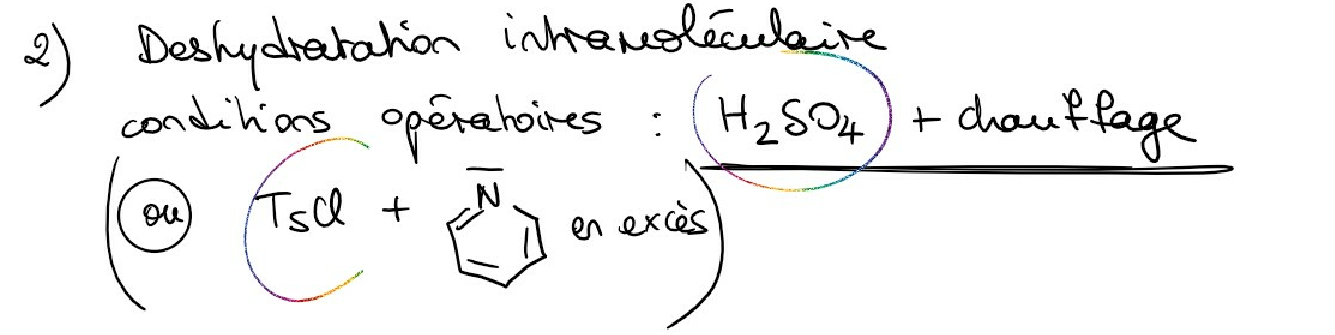 2) Deshydratation intramoléculaire
conditions opératoires : H₂SO₄ + chauffage
(ou TsCl + N en excès)